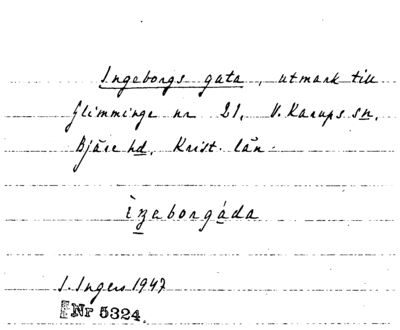 Ingeborgs gata, utmark till
Glimminge nr 21, V. Karups sn,
Bjäre hd, Krist. län.
ìŋaborgáda
I. Ingers 1947
Nr 5324.